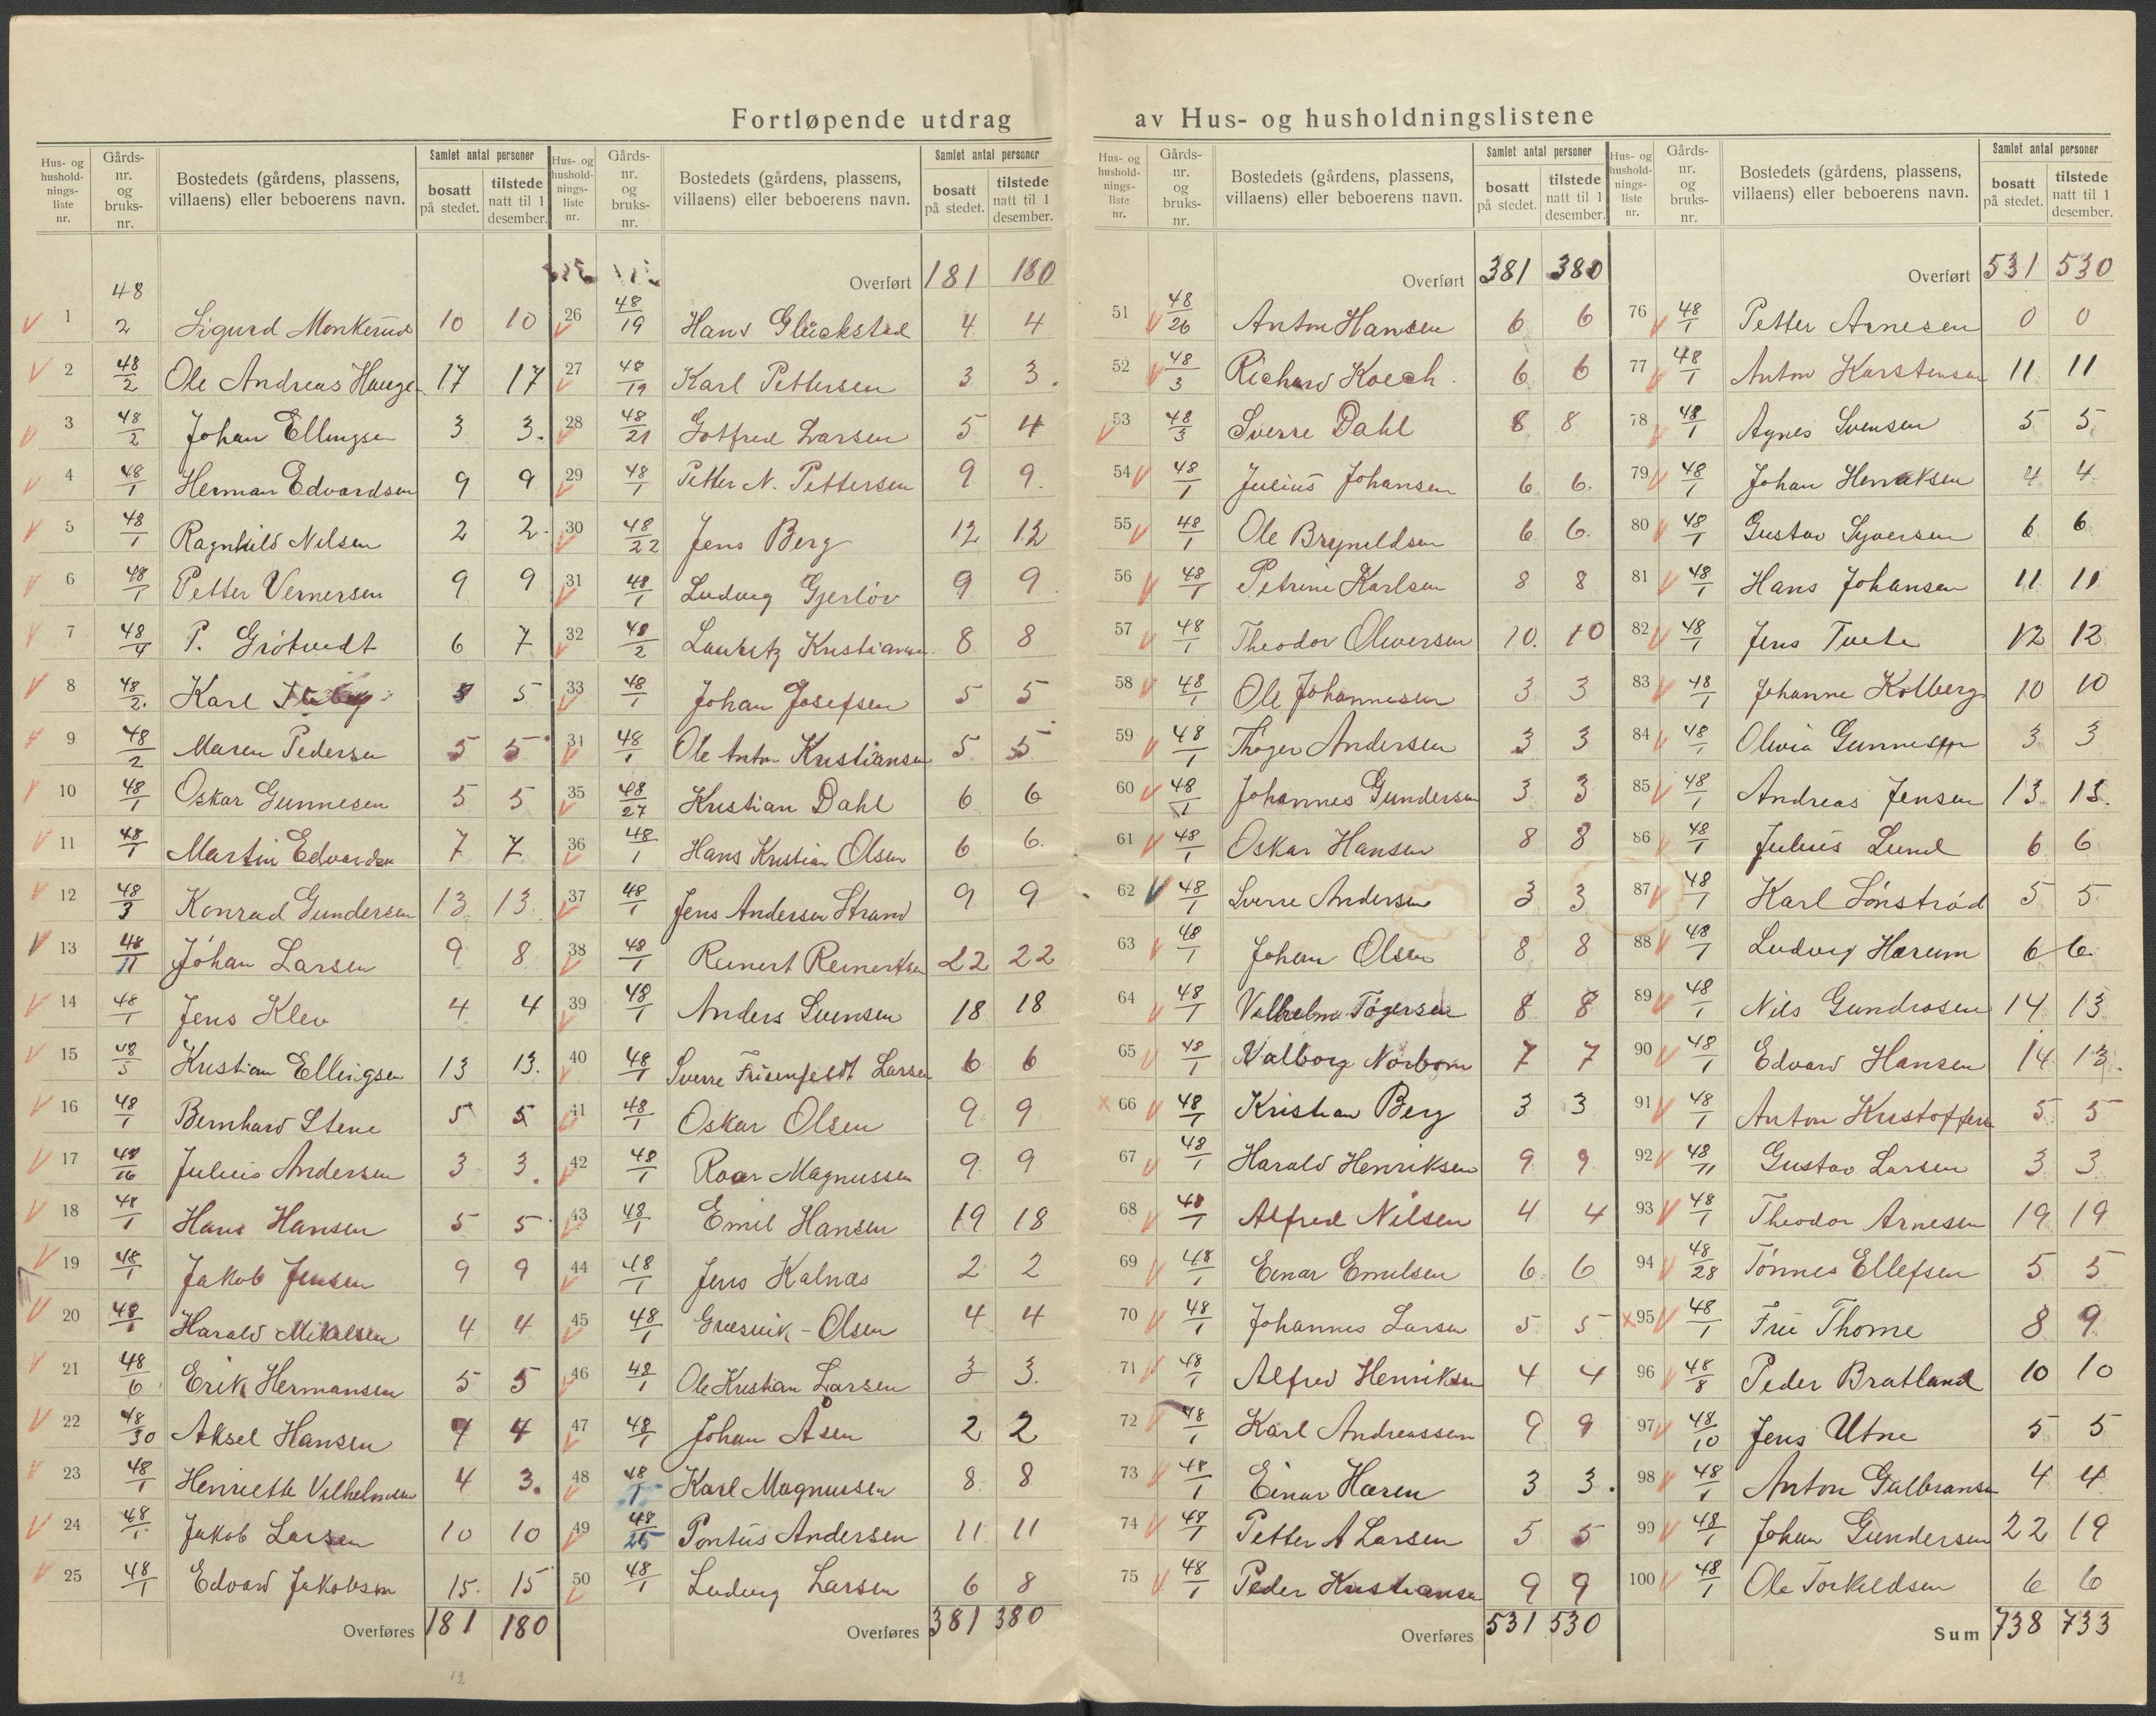 Fortløpende utdrag av Hus- og husholdningslistene
Hus- og husholdningsliste nr. | Gårdsnr. og bruksnr. | Bostedets (gårdens, plassens, villaens) eller beboerens navn. | Samlet antal personer | bosatt på stedet. | tilstede natt til 1 desember.
1 48 2 Sigurd Monkerud 10 10
2 48/2 Ole Andreas Hauge 17 17
3 48/2 Johan Ellingsen 3 3.
4 48/1 Herman Edvardsen 9 9
5 48/1 Ragnhild Nilsen 2 2.
6 48/1 Petter Vernersen 9 9
7 48/4 P. Grötvedt 6 7
8 48/2. Karl 5 5
9 48/2 Maren Pedersen 5 5
10 48/1 Oskar Gunnesen 5 5
11 48/1 Martin Edvardsen 7 7
12 48/3 Konrad Gundersen 13 13
13 48/11 Johan Larsen 9 8
14 48/1 Jens Klev 4 4
15 48/5 Kristian Ellingsen 13 13.
16 48/1 Bernhard Stene 5 5
17 48/16 Julius Andersen 3 3.
18 48/1 Hans Hansen 5 5
19 48/1 Jakob Jensen 9 9
20 48/1 Harald Mikalsen 4 4
21 48/6 Erik Hermansen 5 5
22 48/30 Aksel Hansen 4 4
23 48/1 Henriette Vilhelmsen 4 3.
24 48/1 Jakob Larsen 10 10
25 48/1 Edvard Jakobsen 15. 15
Overføres 181 180
12
Hus- og husholdningsliste nr. | Gårdsnr. og bruksnr. | Bostedets (gårdens, plassens, villaens) eller beboerens navn. | Samlet antal personer | bosatt på stedet. | tilstede natt til 1 desember.
Overført 181 180
26 48/19 Hans Glückstad 4 4
27 48/19 Karl Pettersen 3 3.
28 48/21 Gotfred Larsen 5 4
29 48/1 Petter N. Pettersen 9 9.
30 48/22 Jens Berg 12 12
31 48/1 Ludvig Gjerlöv 9 9
32 48/2 Lauritz Kristiansen 8 8
33 48/1 Johan Josefsen 5 5
34 48/1 Ole Anton Kristiansen 5 5
35 48/27 Kristian Dahl 6 6
36 48/1 Hans Kristian Olsen 6 6.
37 48/1 Jens Andersen Strand 9 9
38 48/1 Reinert Reinertsen 22 22
39 48/1 Anders Svensen 18 18
40 48/1 Sverre Frisenfeldt Larsen 6 6
41 48/1 Oskar Olsen 9 9
42 48/1 Roar Magnussen 9 9
43 48/1 Emil Hansen 19 18
44 48/1 Jens Kalnæs 2 2
45 48/1 Græsvik-Olsen 4 4
46 48/1 Ole Kristian Larsen 3 3.
47 48/1 Johan Åsen 2 2
48 48/1 Karl Magnussen 8 8
49 48/25 Pontus Andersen 11 11
50 48/1 Ludvig Larsen 6 8
Overføres 381 380
Hus- og husholdningsliste nr. | Gårdsnr. og bruksnr. | Bostedets (gårdens, plassens, villaens) eller beboerens navn. | Samlet antal personer | bosatt på stedet. | tilstede natt til 1 desember.
Overført 381 380
51 48/26 Anton Hansen 6 6
52 48/3 Richard Koech 6 6
53 48/3 Sverre Dahl 8 8
54 48/1 Julius Johansen 6 6.
55 48/1 Ole Bryneldsen 6 6.
56 48/1 Petrine Karlsen 8 8
57 48/1 Theodor Oliversen 10. 10
58 48/1 Ole Johannesen 3 3
59 48/1 Thöger Andersen 3 3
60 48/1 Johannes Gundersen 3 3
61 48/1 Oskar Hansen 8 8
62 48/1 Sverre Andersen 3 3
63 48/1 Johan Olsen 8 8
64 48/1 Vilhelm Tögersen 8 8
65 48/1 Valborg Norbom 7 7
66 48/1 Kristian Berg 3 3
67 48/1 Harald Henriksen 9 9
68 48/1 Alfred Nilsen 4 4
69 48/1 Einar Emilsen 6 6
70 48/1 Johannes Larsen 5 5
71 48/1 Alfred Henriksen 4 4
72 48/1 Karl Andreassen 9 9
73 48/1 Einar Haren 3 3.
74 48/1 Petter A Larsen 5 5
75 48/1 Peder Kristiansen 9 9
Overføres 531 530
Hus- og husholdningsliste nr. | Gårdsnr. og bruksnr. | Bostedets (gårdens, plassens, villaens) eller beboerens navn. | Samlet antal personer | bosatt på stedet. | tilstede natt til 1 desember.
Overført 531 530
76 48/1 Petter Arnesen 0 0
77 48/1 Anton Karstensen 11 11
78 48/1 Agnes Svensen 5 5
79 48/1 Johan Henriksen 4 4
80 48/1 Gustav Syversen 6 6
81 48/1 Hans Johansen 11 11
82 48/1 Jens Tvete 12 12
83 48/1 Johanne Kolberg 10 10
84 48/1 Olivia Gunnesen 3 3
85 48/1 Andreas Jensen 13 13.
86 48/1 Julius Lund 6 6
87 48/1 Karl Sönströd 5 5
88 48/1 Ludvig Hærum 6 6
89 48/1 Nils Gundrosen 14 13
90 48/1 Edvard Hansen 14 13.
91 48/1 Anton Kristoffers 5 5
92 48/11 Gustav Larsen 3 3
93 48/1 Theodor Arnesen 19 19
94 48/28 Tönnes Ellefsen 5 5
95 48/1 Frü Thorne 8 9
96 48/8 Peder Bratland 10 10
97 48/10 Jens Utne 5 5
98 48/1 Anton Gulbransen 4 4
99 48/1 Johan Gundersen 22 19
100 48/1 Ole Torkeldsen 6 6
Sum 738 733